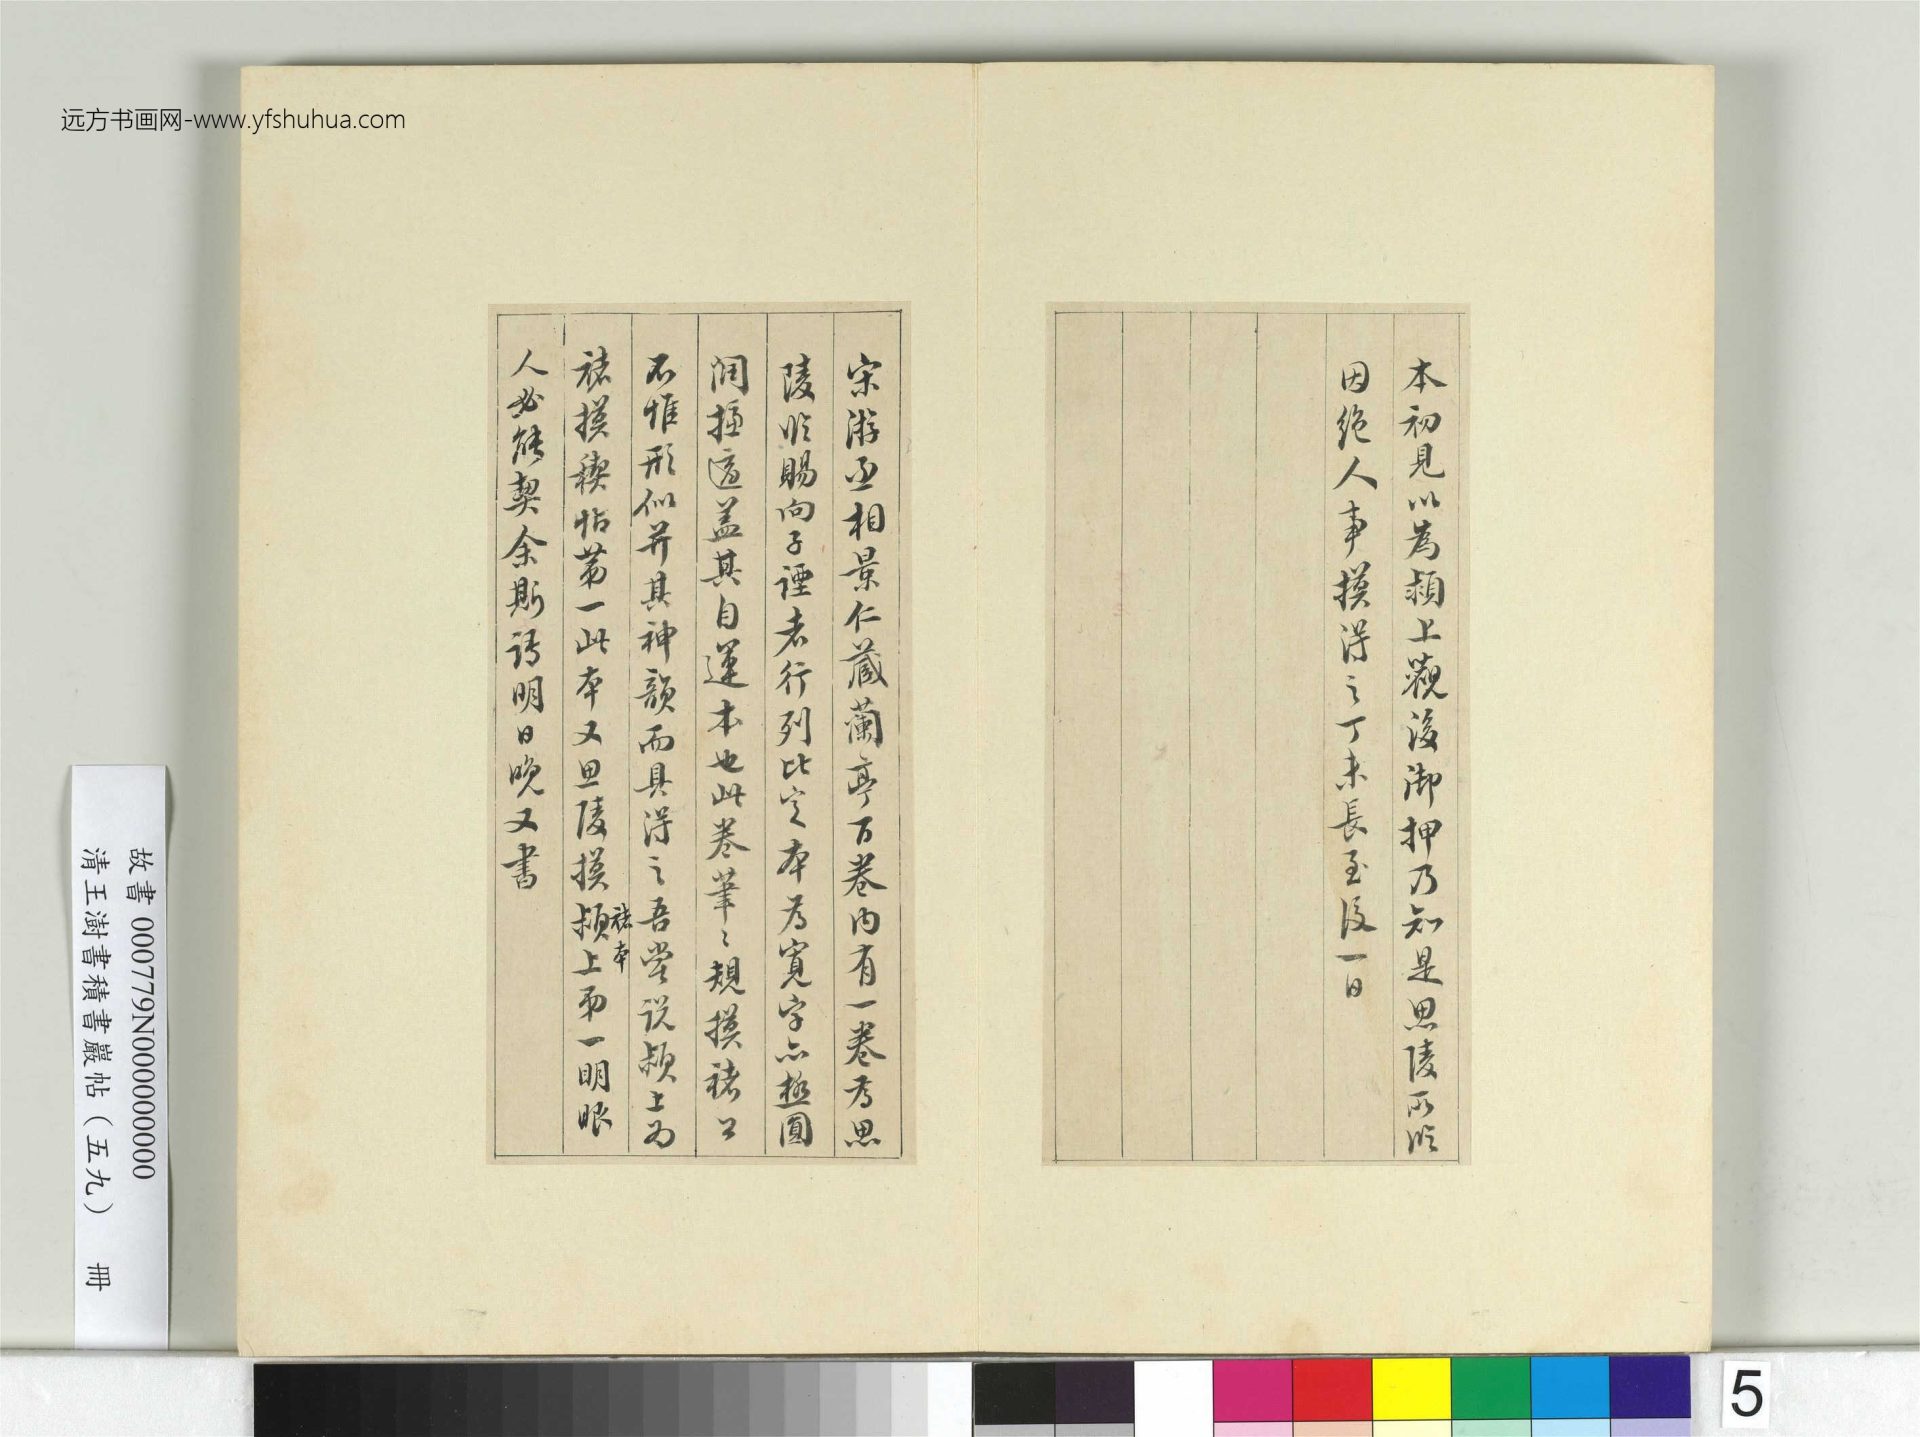 远方书画网-www.yfshuhua.com
本初見以為潁上觀後御押乃知是思陵所臨
因絶人事摸得之丁未長至後一日
宋游丞相景仁藏蘭亭百卷内有一卷為思
陵臨賜向子諲者行列比定本為寬字亦極圓
潤擫適盖其自運本也此卷筆筆規摸褚公
不惟形似并其神韻而具得之吾嘗説潁上為
褚摸稧帖第一此本又思陵摸潁上褚本第一明眼
人必能契余斯語明日晚又書
故書 000779N000000000
清王澍書積書巖帖（五九） 冊
5